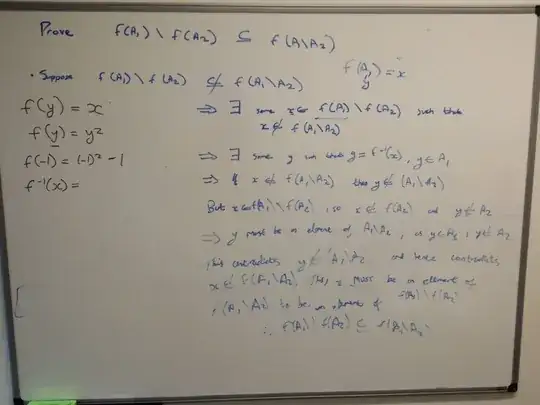 Prove f(A₁) \ f(A₂) ⊆ f(A₁\A₂)
f(A₁) = x
y
• Suppose f(A₁) \ f(A₂) ⊈ f(A₁\A₂)
f(y) = x
f(y) = y²
f(-1) = (-1)² - 1
f⁻¹(x) =
⇒ ∃ some x∈ f(A₁) \ f(A₂) such that
x ∉ f(A₁\A₂)
⇒ ∃ some y such that y = f⁻¹(x), y ∈ A₁
⇒ if x ∉ f(A₁\A₂) then y ∉ (A₁\A₂)
But x∈f(A₁) \ f(A₂), so x ∉ f(A₂) and y ∉ A₂
⇒ y must be an element of A₁\A₂, as y∈A₁, y ∉ A₂
This contradicts y ∉ A₁\A₂ and hence contradicts
x ∉ f(A₁\A₂). Thus, x must be an element of
(A₁\A₂) to be an element of f(A₁) \ f(A₂)
∴ f(A₁) \ f(A₂) ⊆ f(A₁\A₂)